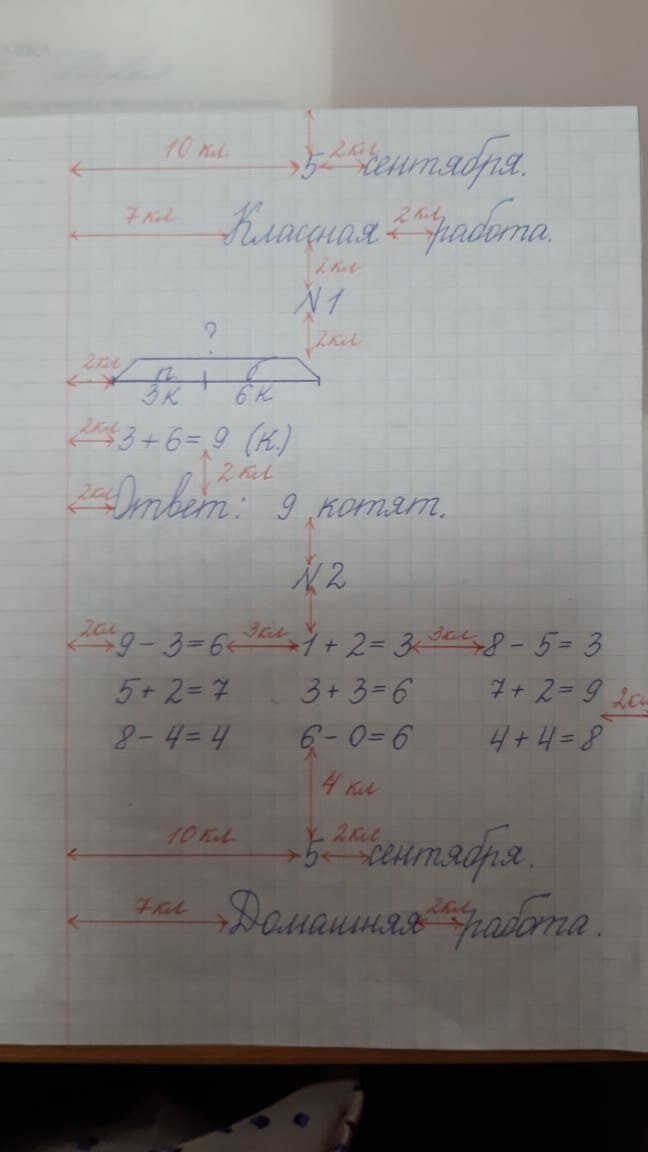 10 кл 5 2кл сентября.
7 кл Классная 2кл работа.
2кл
N1
? 2кл
2кл п б
3к 6к
2кл 3+6=9 (к.)
2 кл
2кл Ответ: 9 котят.
N2
2кл 9-3=6 3кл 1+2=3 3кл 8-5=3
5+2=7 3+3=6 7+2=9 2кл
8-4=4 6-0=6 4+4=8
4 кл
10 кл 5 2кл сентября.
7кл Домашняя 2кл работа.